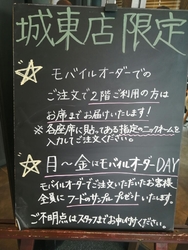 城東店限定
モバイルオーダーでの
ご注文で2階ご利用の方は
お席までお届けいたします!
※各座席に貼ってある指定のニックネームを
入力してご注文ください。
月~金はモバイルオーダーDAY
モバイルオーダーでご注文いただいたお客様
全員にフードのサンプルプレゼントいたします。
ご不明点はスタッフまでお申し付けください。